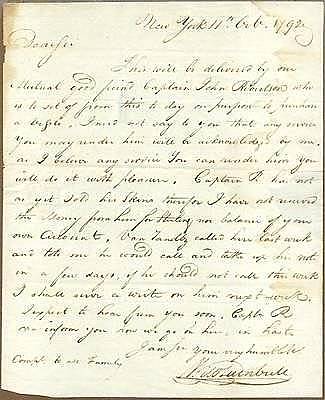 New York 11th Oct. 1792
Dear Sir
This will be delivered by our
Mutual good friend Captain John Robertson who
is to set of from this to day on purpose to purchase
a vessel. I need not say to you that any service
You may render him will be acknowledged by me,
as I believe any service You can render him you
will do it with pleasure. Captain R. has not
as yet sold his therefor I have not received
the Money from him for nor balance of your
own Account. Van called here last week
and told me he would call and take up his note
in a few days, if he should not call this week
I shall serve a writ on him next week.
I expect to hear from you soon. Captn R.
can inform you how we go on here. in haste
I am Sir Your very humble St
Turnbull
Compts. to all Family